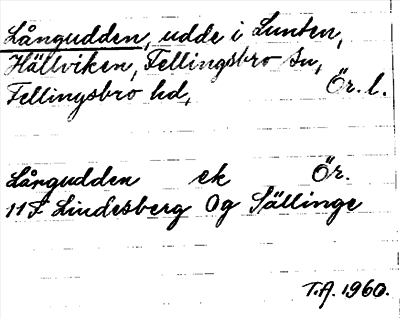 Långudden, udde i Lunten,
Hällviken, Fellingsbro sn,
Fellingsbro hd, Ör. l.
Långudden ek Ör.
11F Lindesberg Og Sällinge
T.A. 1960.